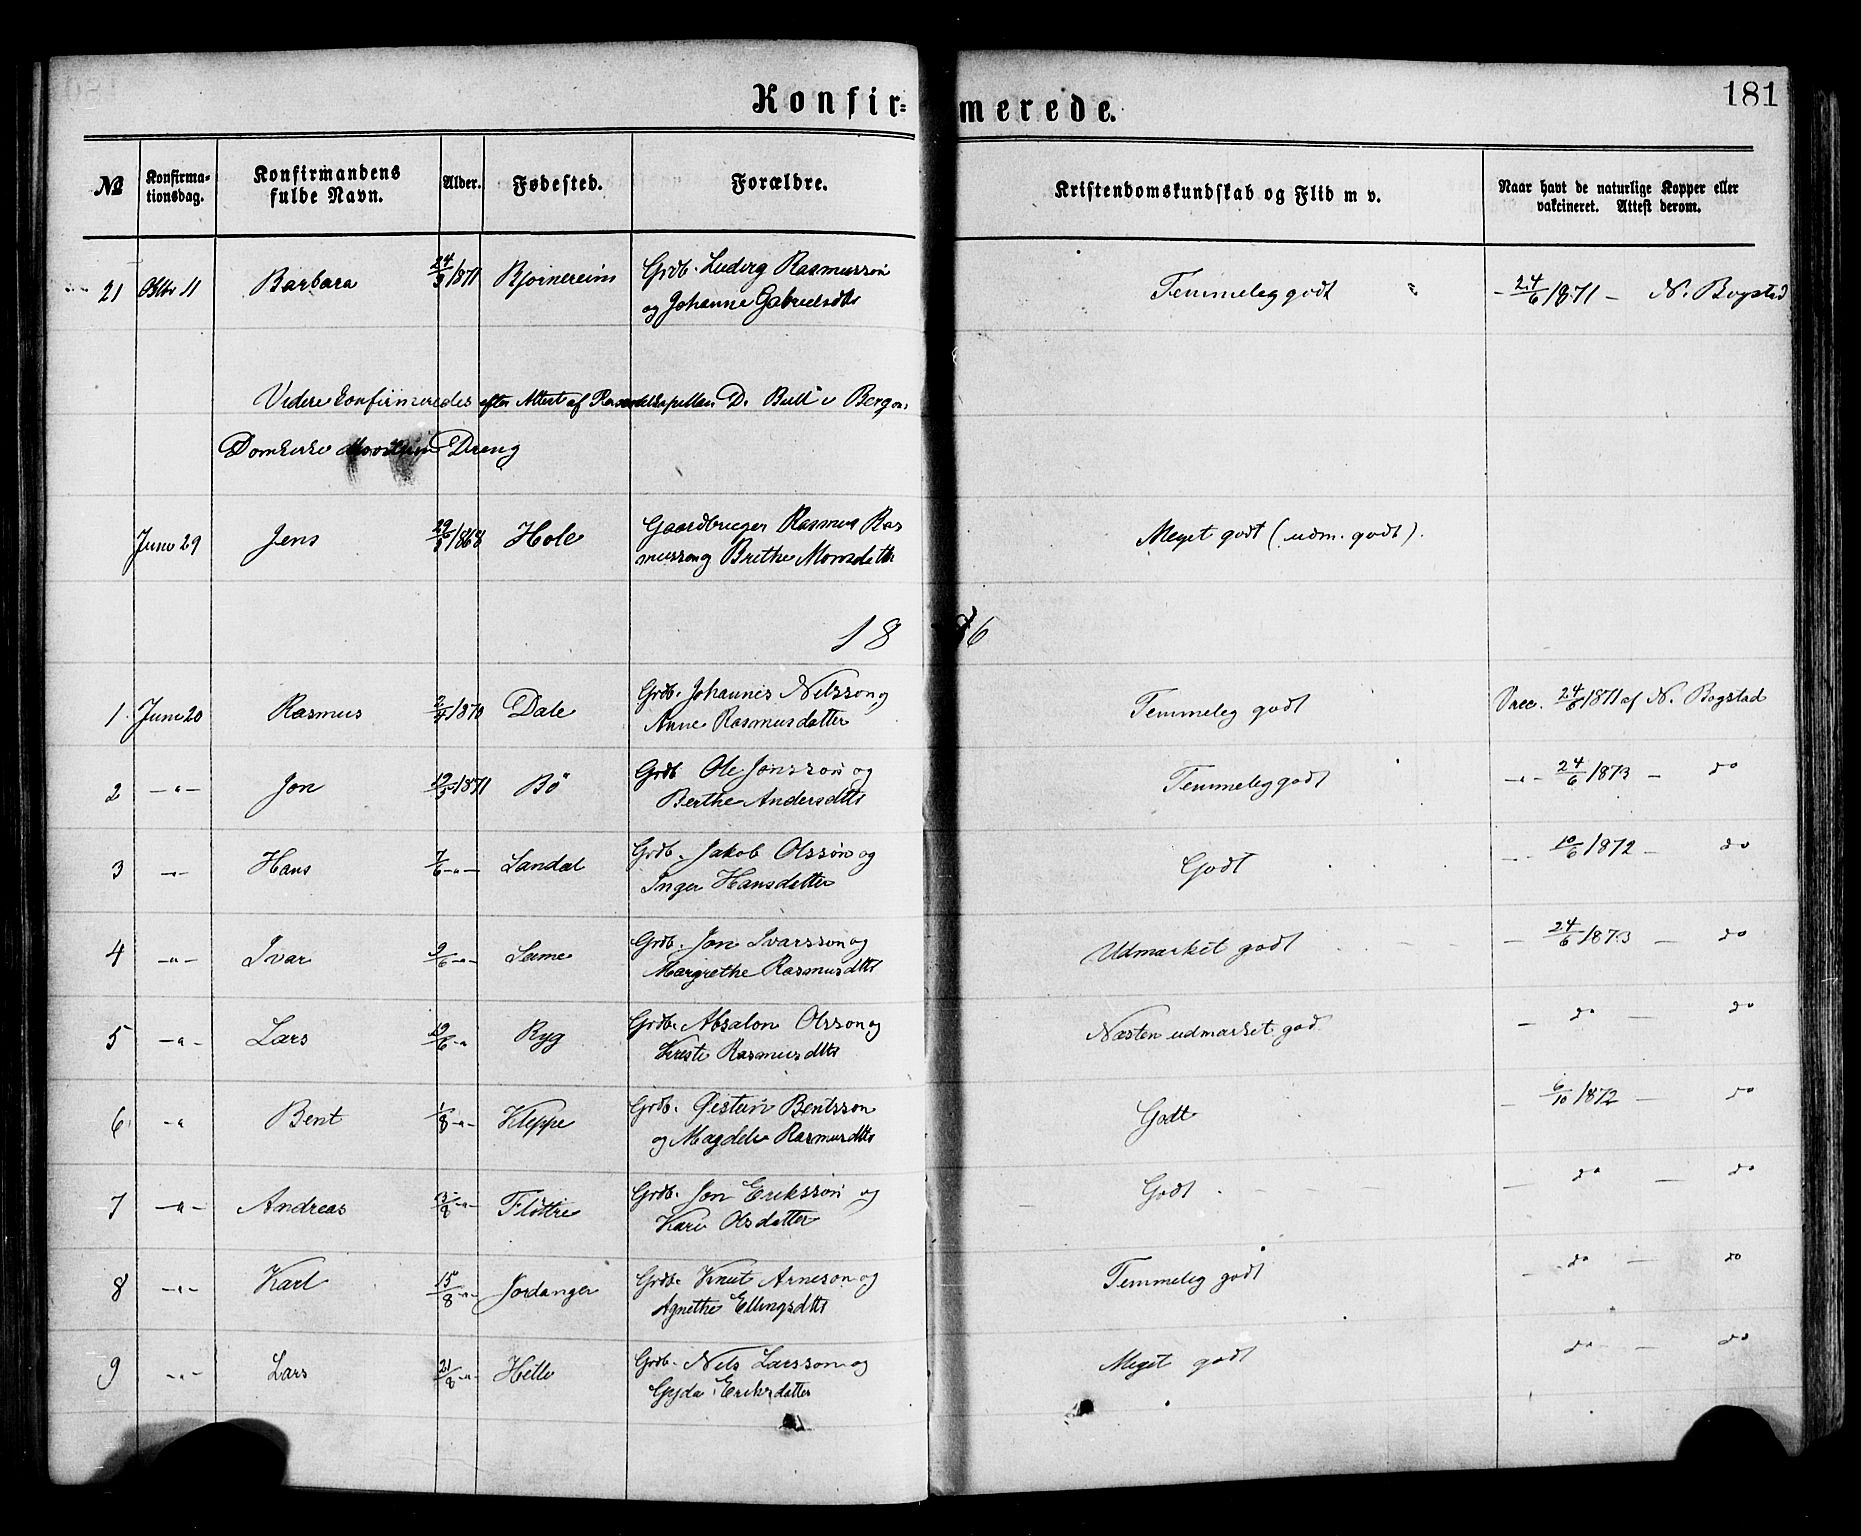 Konfir=merede.
181
№ Konfirma-tionsdag. Konfirmandens fulde Navn. Alder. Fødested. Forældre. Kristendomskundskab og Flid m v. Naar havt de naturlige Kopper eller vakcineret. Attest derom.
21 Oktbr 11 Barbara 24/3 1871 Bjørnereim Grdb. Ludvig Rasmussøn Temmeleg godt " - 24/6 1871 - N. Bogstad
og Johanne Gabrielsdtr
Videre konfirmeredes efter Attest af D. Bull i Bergens
Domkirke Dreng
Juni 29 Jens 1868 Hole Gaardbruger Rasmus Ras
mussen og Brithe Monsdatter Meget godt (udm. godt).
1886
1. Juni 20 Rasmus 2/4 1870 Dale Grdb. Johannes Nilsson og Temmeleg godt Vacc. 24/6 1871 af N. Bogstad
Anne Rasmusdatter
2 -"- Jon 12/5 1871 Bø Grdb Ole Jonsson og Temmeleg godt -"- 24/6 1873 - do
Berthe Andersdtr
3 -"- Hans 7/6 -"- Landal Grdb. Jakob Olsson og Godt - - 10/6 1872 - do
Inger Hansdatter
4 -"- Ivar 9/6 -"- Grdb. Jon Ivarsson og Udmærket godt - 24/6 1873 - do
Margrethe Rasmusdtr
5 -"- Lars 19/6 -"- Ryg Grdb. Absalon Olsson og Næsten udmærket god - do - do
Kirsti Rasmusdtr
6 -" Bent 1/8 -"- Kleppe Grdb. Øistein Bentsson Godt - 6/10 1872 - do
og Magdele Rasmusdtr
7 -"- Andreas 13/8 -"- Fløttre Grdb. Jon Eriksson og Godt - do - do
Kari Olsdatter
8 -"- Karl 15/8 -"- Jordanger Grdb. Knut Arneson og Temmeleg godt - do - do
Agnethe Ellingsdtr
9 -"- Lars 21/8 -"- Hille Grdb. Nils Larsson og Meget godt do - do
Gyda Eriksdatter